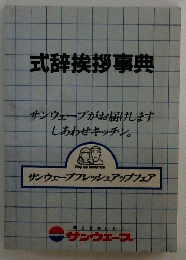 式辞挨拶事典
サンウェーブがお届けします
しあわせキッチン。
サンウェーブフレッシュアップフェア
サンウエーブ